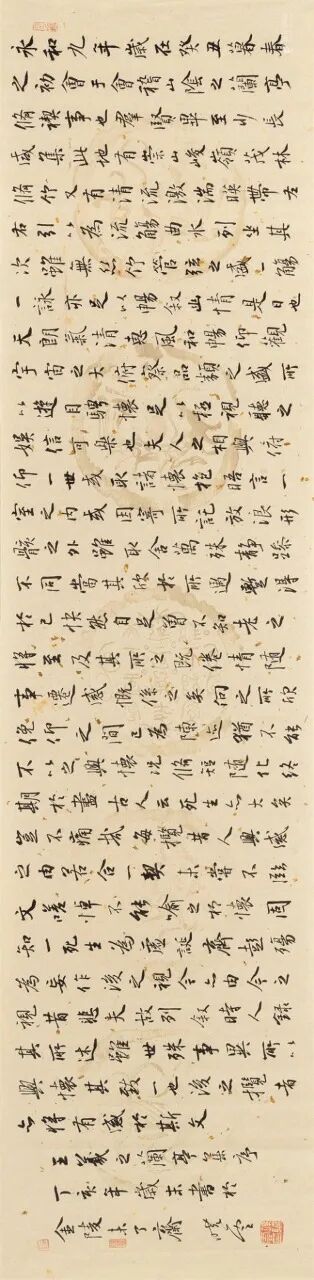 永和九年歲在癸丑暮春
之初會于會稽山陰之蘭亭
脩禊事也羣賢畢至少長
咸集此地有崇山峻嶺茂林
脩竹又有清流激湍暎帶左
右引以為流觴曲水列坐其
次雖無絲竹管弦之盛一觴
一詠亦足以暢叙幽情是日也
天朗氣清惠風和暢仰觀
宇宙之大俯察品類之盛所
以遊目騁懷足以極視聽之
娛信可樂也夫人之相與俯
仰一世或取諸懷抱晤言一
室之內或因寄所託放浪形
骸之外雖取舍萬殊靜躁
不同當其欣於所遇暫得
於己快然自足曾不知老之
將至及其所之既倦情隨
事遷感慨係之矣向之所欣
俛仰之間已為陳迹猶不能
不以之興懷況脩短隨化終
期於盡古人云死生亦大矣
豈不痛哉每攬昔人興感
之由若合一契未嘗不臨
文嗟悼不能喻之於懷固
知一死生為虛誕齊彭殤
為妄作後之視今亦由今之
視昔悲夫故列叙時人錄
其所述雖世殊事異所以
興懷其致一也後之攬者
亦將有感於斯文
王羲之蘭亭集序
丁亥年歲末書於
金陵未了齋